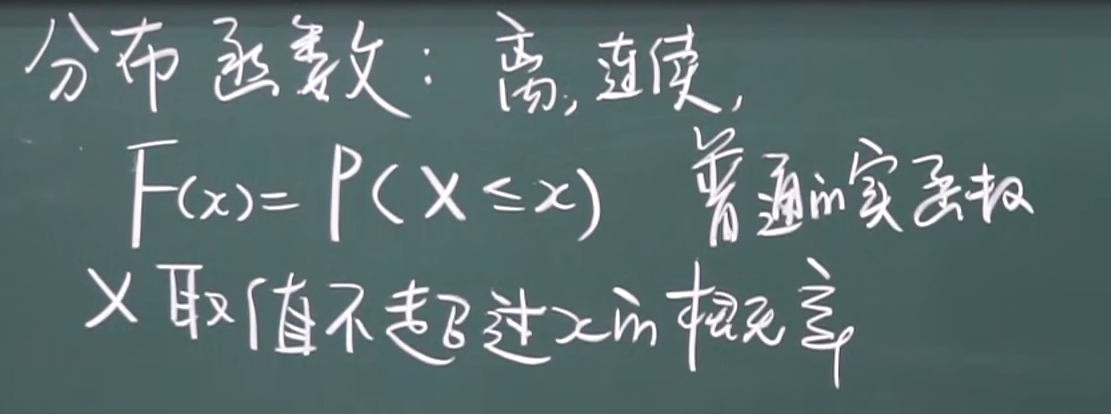 分布函数：离，连续，
F(x)=P(X≤x) 普通的实函数
X取值不超过x的概率